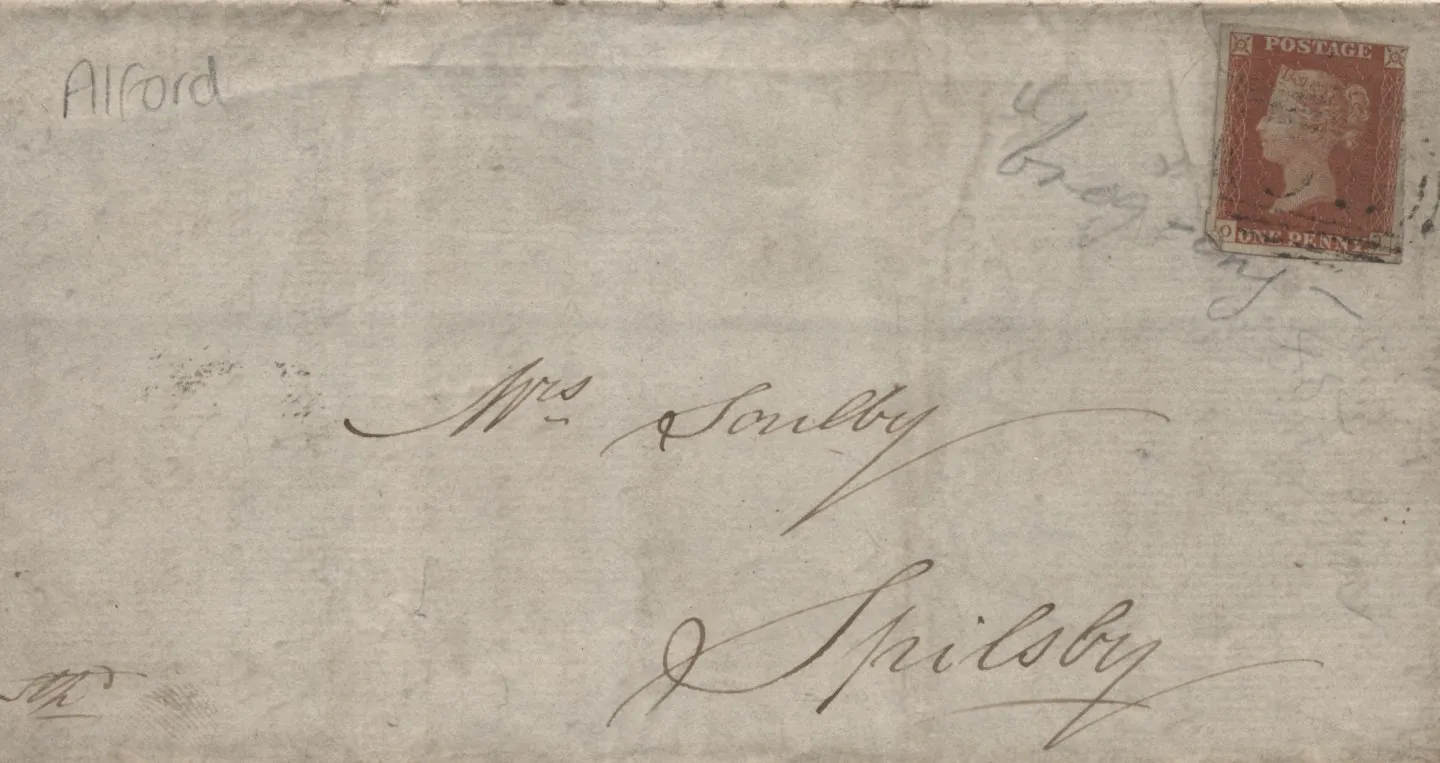 Alford
POSTAGE
O ONE PENNY
Mrs Soulby
Spilsby